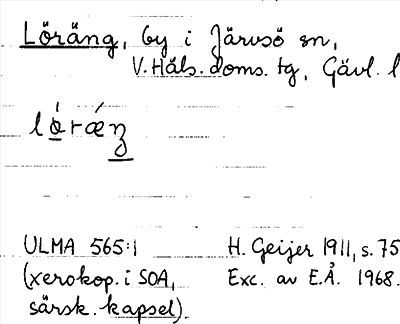 Löräng, by i Järvsö sn,
V. Häls. doms. tg, Gävl. l
lǫ́rǽŋ
ULMA 565:1
(xerokop. i SOA,
särsk. kapsel).
H. Geijer 1911, s. 75
Exc. av E.Å. 1968.